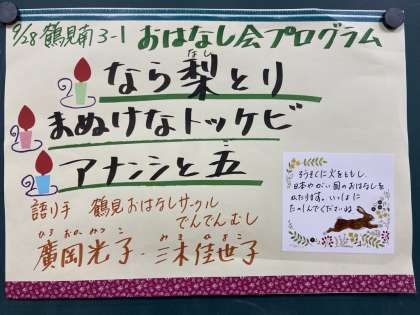 9/28 鶴見南3-1 おはなし会プログラム
なし
なら梨とり
まぬけなトッケビ
アナンシと五
語り手 鶴見おはなしサークル
でんでんむし
ひろおかみつこ
廣岡光子・三木佳世子
ろうそくに火をともし
日本やがい国のおはなしを
かたります。いっしょに
たのしんでくださいね